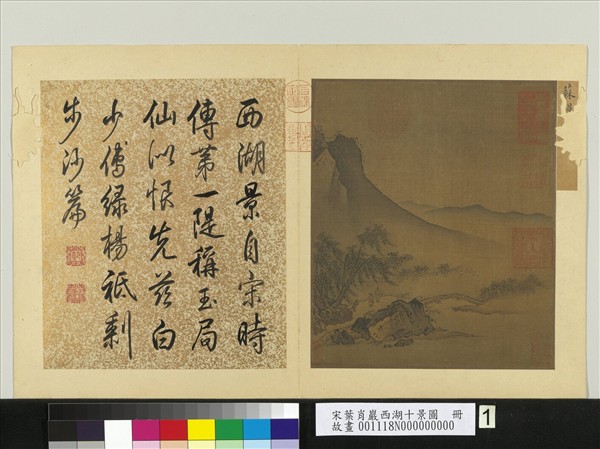 西湖景自宋時
傳第一隄稱玉局
仙似恨先茲白
少傅綠楊祗剩
步沙篇
宋葉肖巖西湖十景圖 冊
故畫 001118N000000000
1